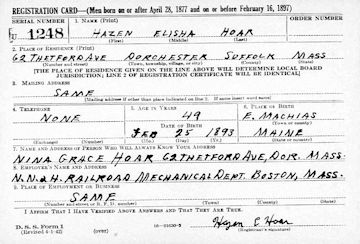 REGISTRATION CARD—(Men born on or after April 28, 1877 and on or before February 16, 1897)
SERIAL NUMBER 1. NAME (Print)
U 1248 HAZEN ELISHA HOAR
(First) (Middle) (Last)
2. PLACE OF RESIDENCE (Print)
62 THETFORD AVE DORCHESTER SUFFOLK MASS
(Number and street) (Town, township, village, or city) (County) (State)
[THE PLACE OF RESIDENCE GIVEN ON THE LINE ABOVE WILL DETERMINE LOCAL BOARD
JURISDICTION; LINE 2 OF REGISTRATION CERTIFICATE WILL BE IDENTICAL]
3. MAILING ADDRESS
SAME
(Mailing address if other than place indicated on line 2. If same insert word same)
4. TELEPHONE 5. AGE IN YEARS 6. PLACE OF BIRTH
NONE 49 E. MACHIAS
DATE OF BIRTH (Town or county)
FEB 25 1893 MAINE
(Exchange) (Number) (Mo.) (Day) (Yr.) (State or country)
7. NAME AND ADDRESS OF PERSON WHO WILL ALWAYS KNOW YOUR ADDRESS
NINA GRACE HOAR 62 THETFORD AVE, DOR. MASS.
8. EMPLOYER'S NAME AND ADDRESS
N.N.&H. RAILROAD MECHANICAL DEPT. BOSTON, MASS.
9. PLACE OF EMPLOYMENT OR BUSINESS
SAME
(Number and street or R. F. D. number) (Town) (County) (State)
I AFFIRM THAT I HAVE VERIFIED ABOVE ANSWERS AND THAT THEY ARE TRUE.
D. S. S. Form 1
(Revised 4-1-42) (over) 16—21630-2 Hazen E Hoar
(Registrant's signature)